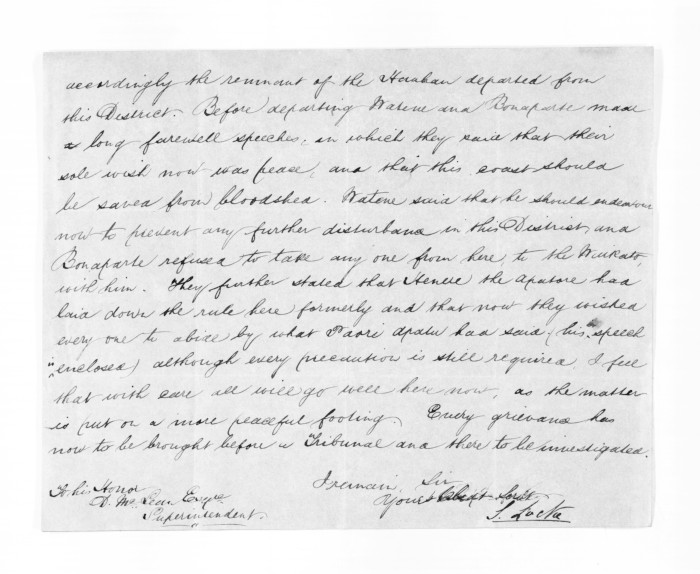 accordingly the remnant of the Hauhau departed from
this District. Before departing Watene and Bonaparte made
a long farewell speeches, in which they said that their
sole wish now was peace, and that this coast should
be saved from bloodshed. Watene said that he should endeavour
now to prevent any further disturbance in this District, and
Bonaparte refused to take any one from here, to the Waikato,
with him. They further stated that Henere the Apatore had
laid down the rule here formerly and that now they wished
every one to abide by what Paori Apatu had said, (his "speech
"enclosed) although every precaution is still required, I feel
that with care all will go well here now, as the matter
is put on a more peaceful footing. Every grievance has
now to be brought before a Tribunal and there to be investigated.
I remain, Sir
To his Honor
D. McLean Esqre
Superintendent.
Your Obedt Servt
S. Locke